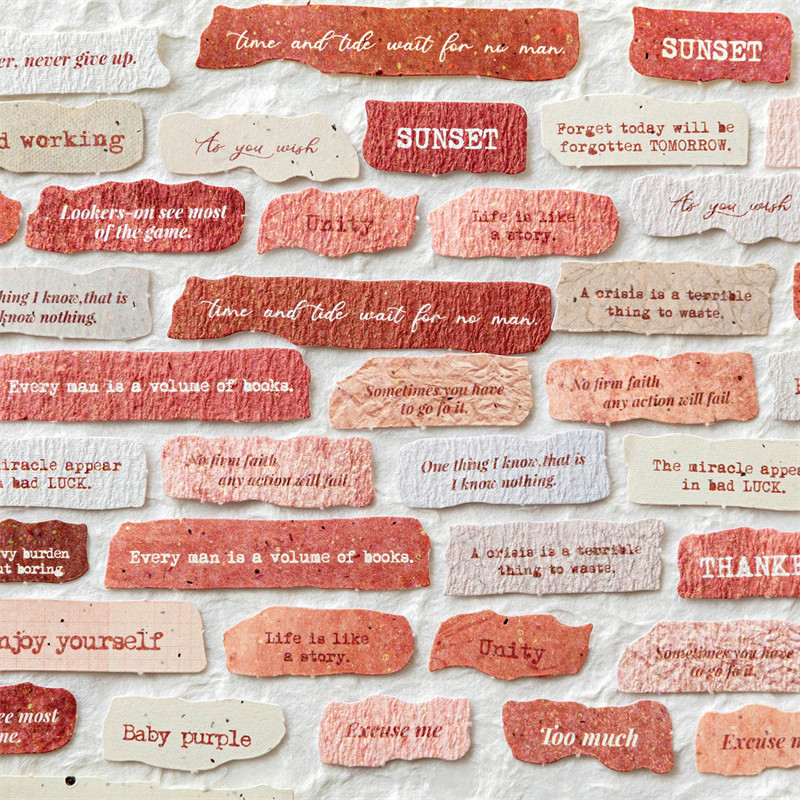 time and tide wait for no man.
SUNSET
er, never give up.
d working
As you wish
SUNSET
Forget today will be
forgotten TOMORROW.
Lookers-on see most
of the game.
Unity
Life is like
a story.
As you wish
hing I know,that is
know nothing.
time and tide wait for no man.
A crisis is a terrible
thing to waste.
Every man is a volume of books.
Sometimes you have
to go fo it.
No firm faith
any action will fail
miracle appear
A bad LUCK.
No firm faith
any action will fail
One thing I know,that is
I know nothing.
The miracle appea
in bad LUCK.
vy burden
ut boring
Every man is a volume of books.
A crisis is a terrible
thing to waste.
THANKF
njoy yourself
Life is like
a story.
Unity
Sometimes you have
to go fo it.
ee most
me.
Baby purple
Excuse me
Too much
Excuse m